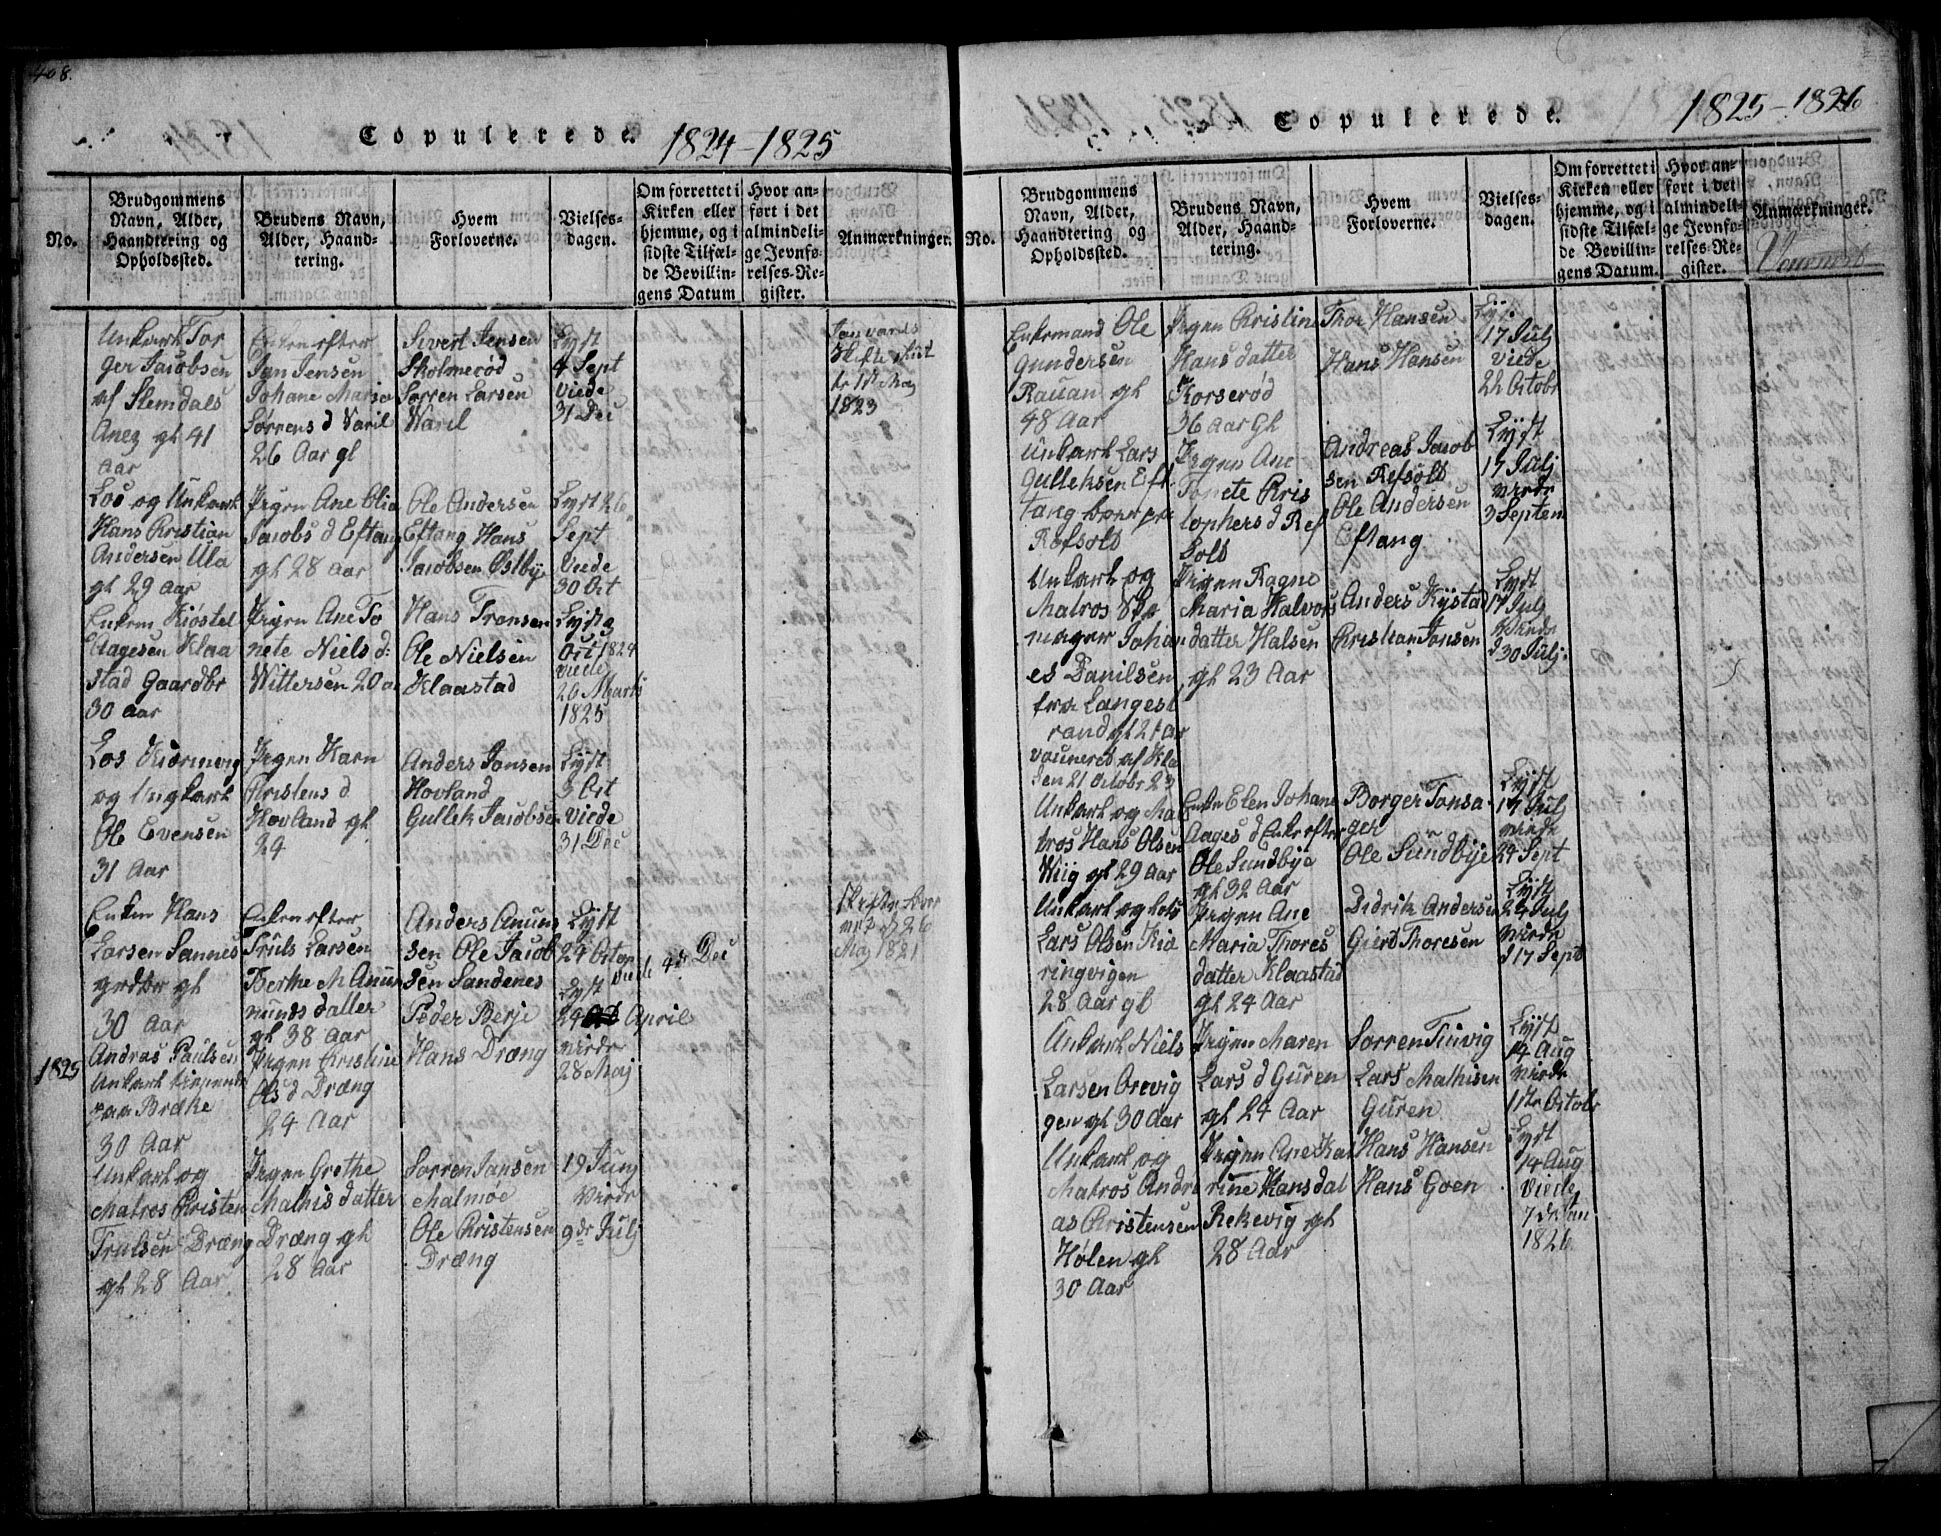 408.
Copulerede. 1824-1825
No.
Brudgommens
Navn, Alder,
Haandtering og
Opholdssted.
Brudens Navn,
Alder, Haand-
tering.
Hvem
Forloverne.
Vielses-
dagen.
Om forrettet i
Kirken eller
hjemme, og i
sidste Tilfæl-
de Bevillin-
gens Datum
Hvor an-
ført i det
almindeli-
ge Jevnfø-
relses-Re-
gister.
Anmærkninger.
Unkarl Tor
ger Jacobsen
af Slemdals
Aneg gl 41
Aar
Enken efter
Jan Jensen
Johane Maria
Sørrens d Varil
26 Aar gl
Sivert Jensen
Skolmerød
Sorren Larsen
Waril
Lyst
4 Sept
Viede
31 Dec
1823
Los og Unkarl
Hans Kristian
Andersen Ula
gl 29 aar
Pigen Ane Olia
Jacobs d Eftang
gl 28 aar
Ole Andersen
Eftang Hans
Jacobsen Østbye
Lyst 26
Sept
Viede
30 Oct
Enkem Kiøstel
Aagesen Klaa
stad Gaardbr
30 aar
Pigen Ane To
nete Niels d:
Wittersen 20 a
Hans Transen
Ole Nielsen
Klaastad
Lyst 9
Oct 1824
viede
26 Marts
1825
Los Kiørnvig
og Ungkarl
Ole Evensen
31 Aar
Pigen Karn
Kristens d
Hovland gl
24
Anders Jonsen
Hovland
Gullek Jacobsen
Lyst
3 Oct
Viede
31 Dec
Enkm Hans
Larsen Sannes
grdbr gl
30 Aar
Enken efter
Truls Larsen
Berthe M Amun
nunds datter
gl 38 aar
Anders Amuns
sen Ole Jacob
sen Sandenes
Lyst
24 Octop
viede 4de Dec
May 1821
1825
Andras Paulsen
Unkarl
paa Bræke
30 Aar
Pigen Kristine
Ols d Dræng
24 Aar
Peder Berje
Hans Dræng
Lyst
24 April
virde
28 Maj
Unkarl og
Matros Kristen
Trulsen Dræng
gl 28 Aar
Pigen Grethe
Mathis datter
Dræng gl
28 Aar
Sorren Jansen
Malmøe
Ole Christensen
Dræng
19 Junj
Virdr
9de Julj
Copulerede. 1825-1826
No.
Brudgommens
Navn, Alder,
Haandtering og
Opholdssted.
Brudens Navn,
Alder, Haand-
tering.
Hvem
Forloverne.
Vielses-
dagen.
Om forrettet i
Kirken eller
hjemme, og i
sidste Tilfæl-
de Bevillin-
gens Datum.
Hvor an-
ført i det
almindeli-
ge Jevnfø-
relses-Re-
gister.
Anmærkninger.
Enkemand Ole
Gundersen
Rauan gl
48 Aar
Pigen Kristine
Hans datter
Korserød
36 aar Gl
Thor Hansen
Hans Hansen
Lyst
17 Julj
viede
22 Octobr
Unkarl Lars
Gulleksen Eft
tang
Refsolt
Pigen Ane
Tonete Kris
tophers d Ref
solt
Andreas Jacob
sen Refsolt
Ole Andersen
Eftang
Lyst
17 Julj
virde
3 Septem
Unkarl og
Matros
mager Johan
es Danilsen
fra Langest
rand gl 21 ar
vauneret af Kla
sen 21 Octobr 23
Pigen Ragne
Maria Halvors
datter Halsen
gl 23 Aar
Anders Kystad
Kristian Jonsen
Lyst
17 Julj
virde
30 Julj
Unkarl og Ma
tros Hans Olsen
Wiig gl 29 Aar
Enke Elen Johane
Aages d Enke efter
Ole Sundbye
gl 32 Aar
Borger Tonsa
ger
Ole Sundbye
Lyst
17 Julj
virde
24 Sept
Unkarl og Lots
Lars Olsen Kiæ
ringvigen
28 Aar gl
Pigen Ane
Maria Thores
datter Klaastad
gl 24 Aar
Didrik Andersen
Giert Thoresen
Lyst
24 Julj
virde
17 Sept
Unkarl Niels
Larsen Orevig
gen gl 30 Aar
Pigen Maren
Lars d Guren
gl 24 Aar
Sorren Tinvig
Lars Mathisen
Guren
Lyst
14 Aug
virde
1ste Octobr
Unkarl og
Matros Andre
as Christensen
Hølen gl
30 Aar
Pigen Ane Kat
rine Hansdat
Rekevig gl
28 Aar
Hans Hansen
Hans Goen
Lyst
14 Aug
Viede
7 de Jan
1826